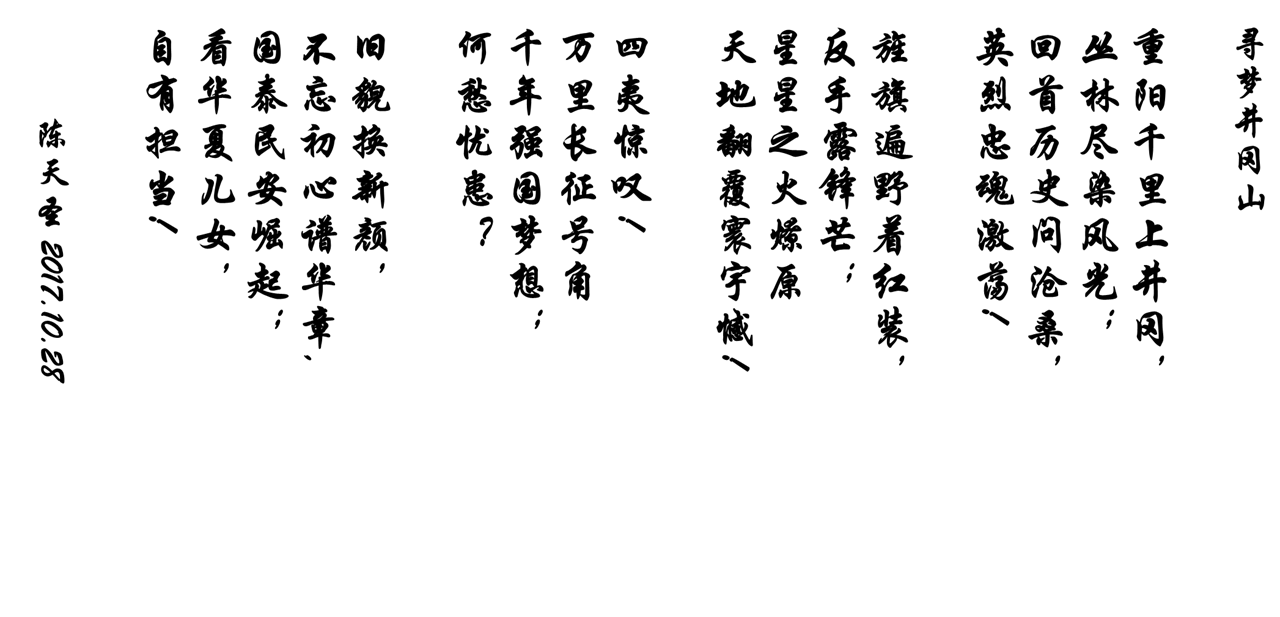 寻梦井冈山
重阳千里上井冈，
丛林尽染风光；
回首历史问沧桑，
英烈忠魂激荡！
旌旗遍野着红装，
反手露锋芒；
星星之火燎原
天地翻覆寰宇憾！
四夷惊叹！
万里长征号角
千年强国梦想；
何愁忧患？
旧貌换新颜，
不忘初心谱华章.
国泰民安崛起；
看华夏儿女，
自有担当！
陈天圣 2017.10.28